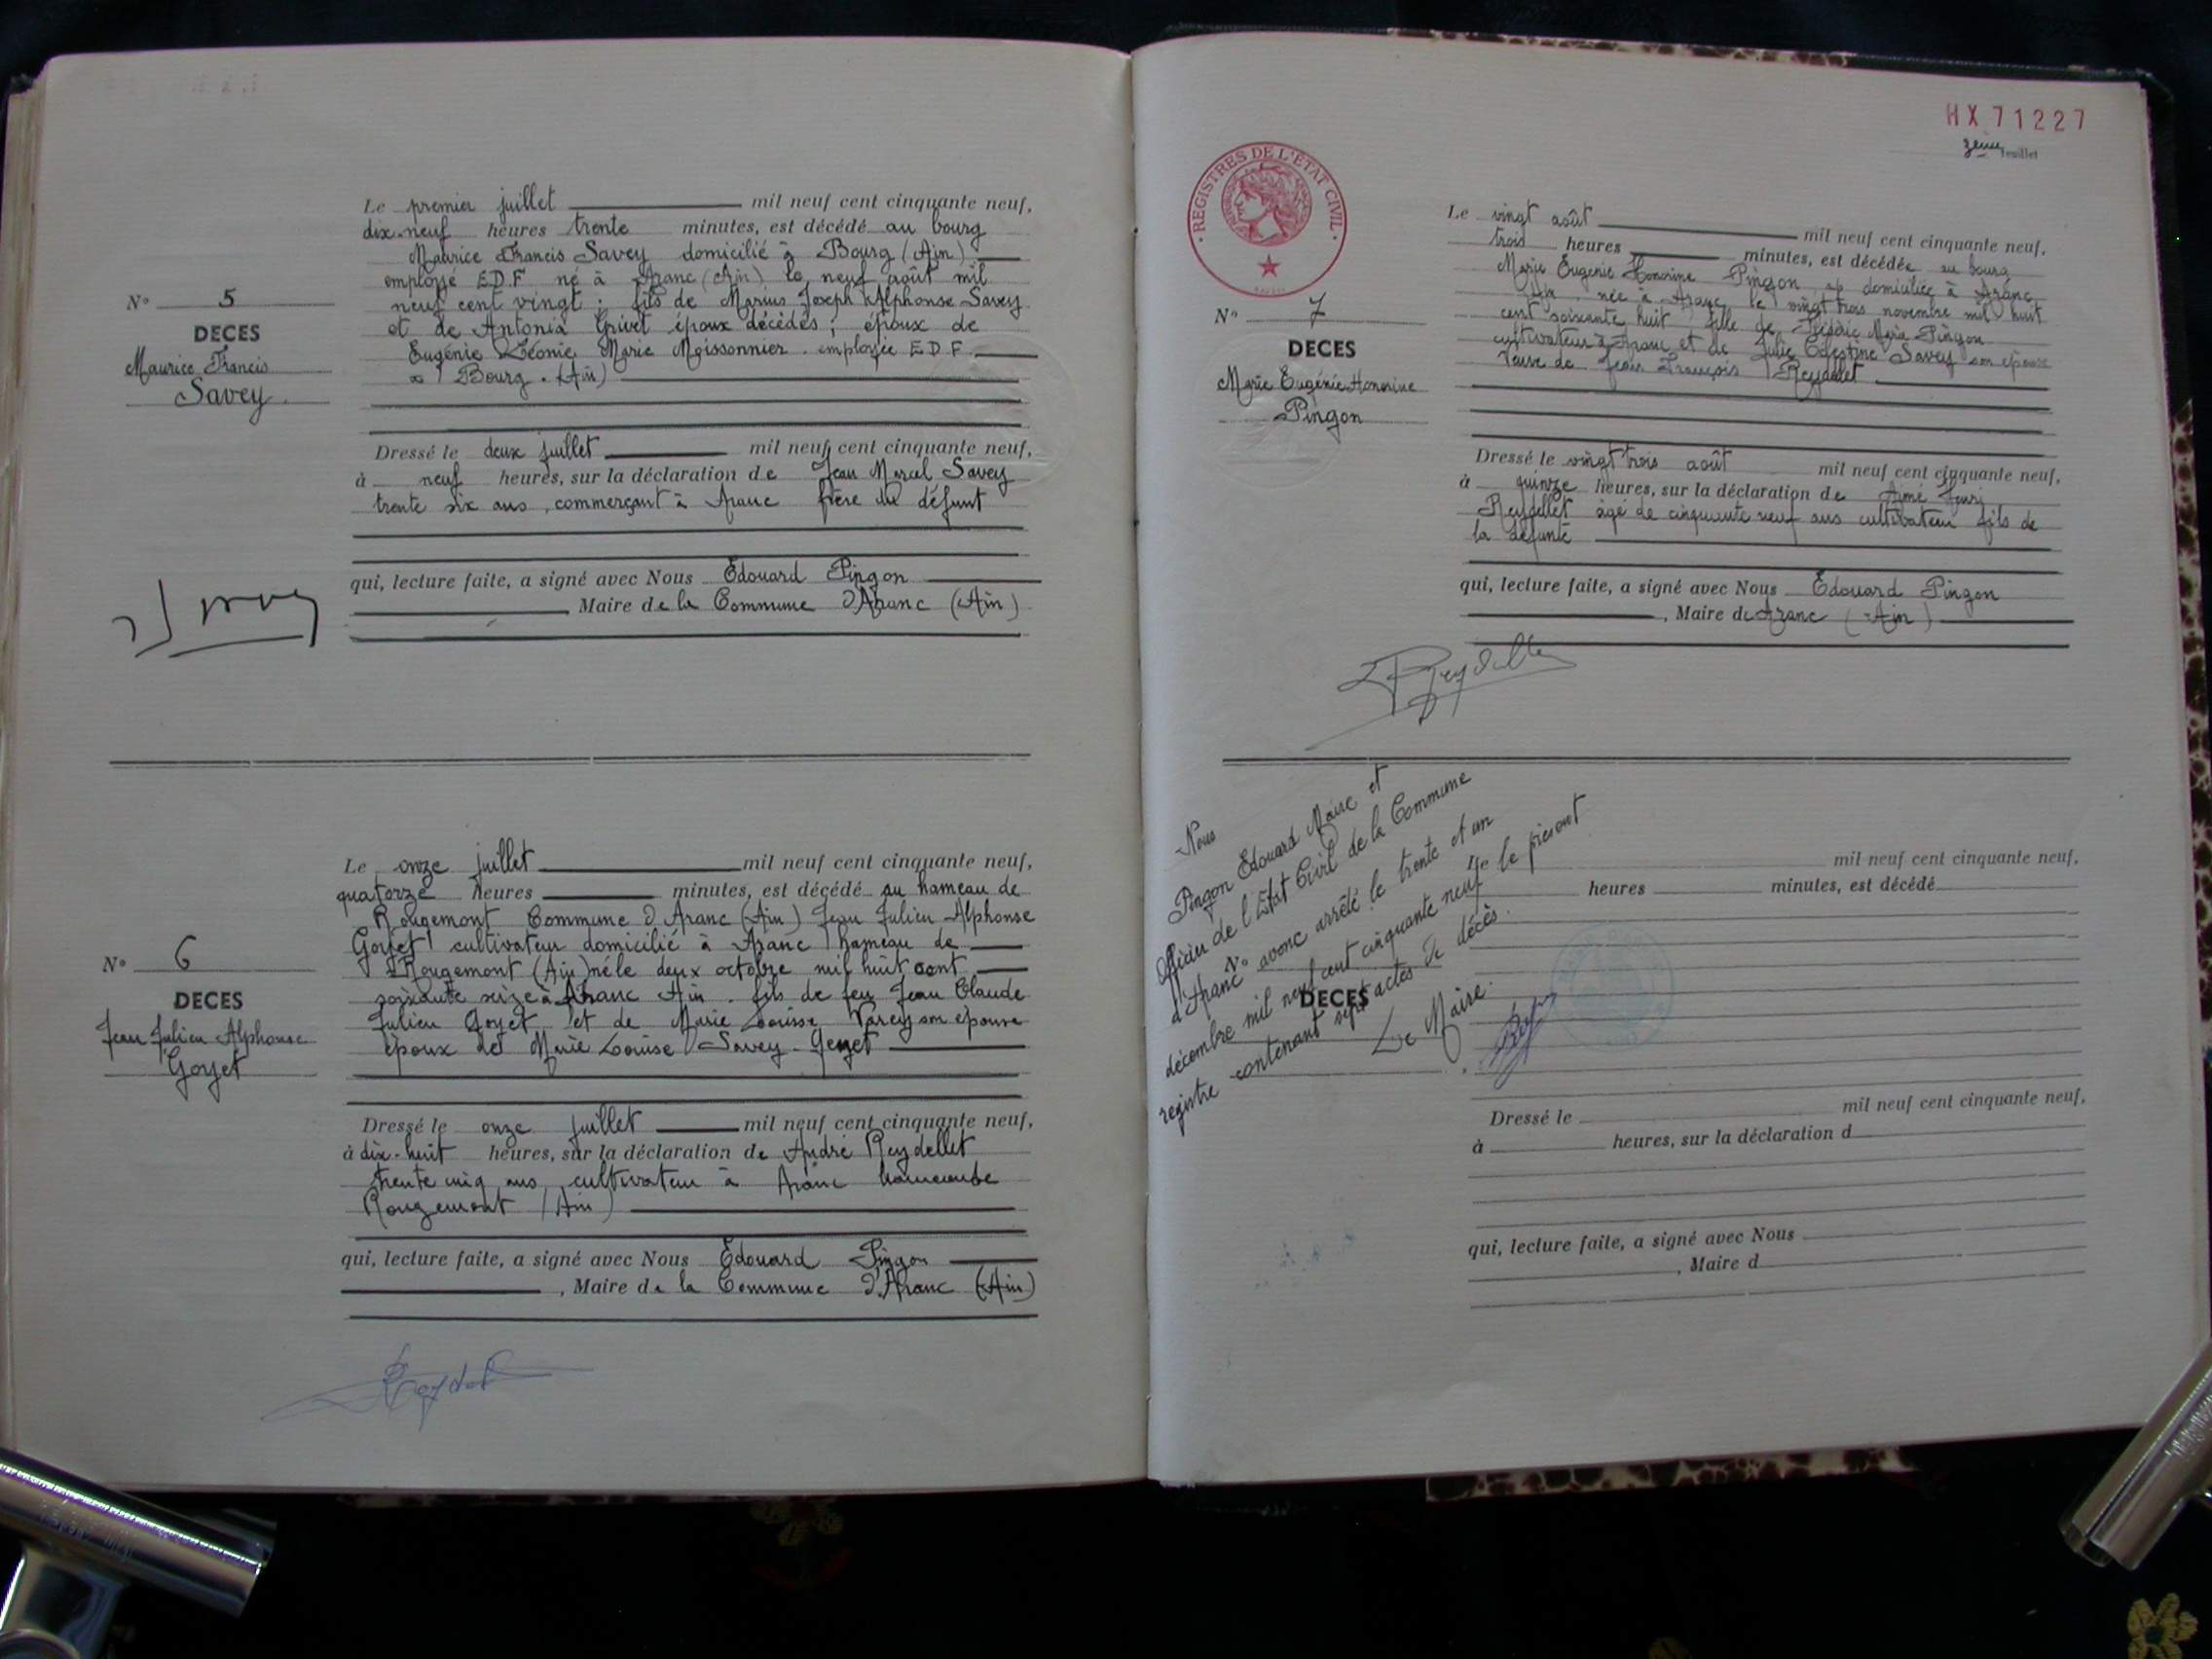 Le premier juillet mil neuf cent cinquante neuf,
dix-neuf heures trente minutes, est décédé au bourg
Maurice Francis Savey domicilié à Bourg (Ain)
employé E.D.F né à Aranc (Ain) le neuf août mil
neuf cent vingt ; fils de Marius Joseph Alphonse Savey
et de Antonia Grivet époux décédés ; époux de
Eugénie Léonie Marie Moissonnier employée E.D.F
à Bourg. (Ain)
N° 5
DECES
Maurice Francis
Savey
Dressé le deux juillet mil neuf cent cinquante neuf,
à neuf heures, sur la déclaration de Jean Marcel Savey
trente six ans, commerçant à Aranc frère du défunt
qui, lecture faite, a signé avec Nous Edouard Pingon
Maire de la Commune d'Aranc (Ain)
Le onze juillet mil neuf cent cinquante neuf,
quatorze heures minutes, est décédé au hameau de
Rougemont Commune d'Aranc (Ain) Jean Julien Alphonse
Goyet cultivateur domicilié à Aranc hameau de
Rougemont (Ain) né le deux octobre mil huit cent
soixante seize à Aranc Ain. fils de feu Jean Claude
Julien Goyet et de Marie Louise Varey son épouse
époux de Marie Louise Savey-Goyet
N° 6
DECES
Jean Julien Alphonse
Goyet
Dressé le onze juillet mil neuf cent cinquante neuf,
à dix-huit heures, sur la déclaration de André Reydellet
trente cinq ans, cultivateur à Aranc hameau de
Rougemont (Ain)
qui, lecture faite, a signé avec Nous Edouard Pingon
, Maire de la Commune d'Aranc (Ain)
HX 71227
3ème feuillet
REGISTRES DE L'ETAT CIVIL
Le vingt août mil neuf cent cinquante neuf,
trois heures minutes, est décédée au bourg
Marie Eugénie Honorine Pingon domiciliée à Aranc
Ain. née à Aranc le vingt trois novembre mil huit
cent soixante huit fille de Frédéric Pingon
cultivateur à Aranc et de Julie Célestine Savey son épouse
Veuve de Jean François Reydellet
N° 7
DECES
Marie Eugénie Honorine
Pingon
Dressé le vingt trois août mil neuf cent cinquante neuf,
à quinze heures, sur la déclaration de Aimé Henri
Reydellet âgé de cinquante neuf ans cultivateur fils de
la défunte
qui, lecture faite, a signé avec Nous Edouard Pingon
, Maire de Aranc (Ain)
Nous
Pingon Edouard Maire et
Officier de l'Etat Civil de la Commune
d'Aranc avons arrêté le trente et un
décembre mil neuf cent cinquante neuf le présent
registre contenant sept actes de décès.
Le Maire.
N°
DECES
Le mil neuf cent cinquante neuf,
heures minutes, est décédé
Dressé le mil neuf cent cinquante neuf,
à heures, sur la déclaration d
qui, lecture faite, a signé avec Nous
, Maire d